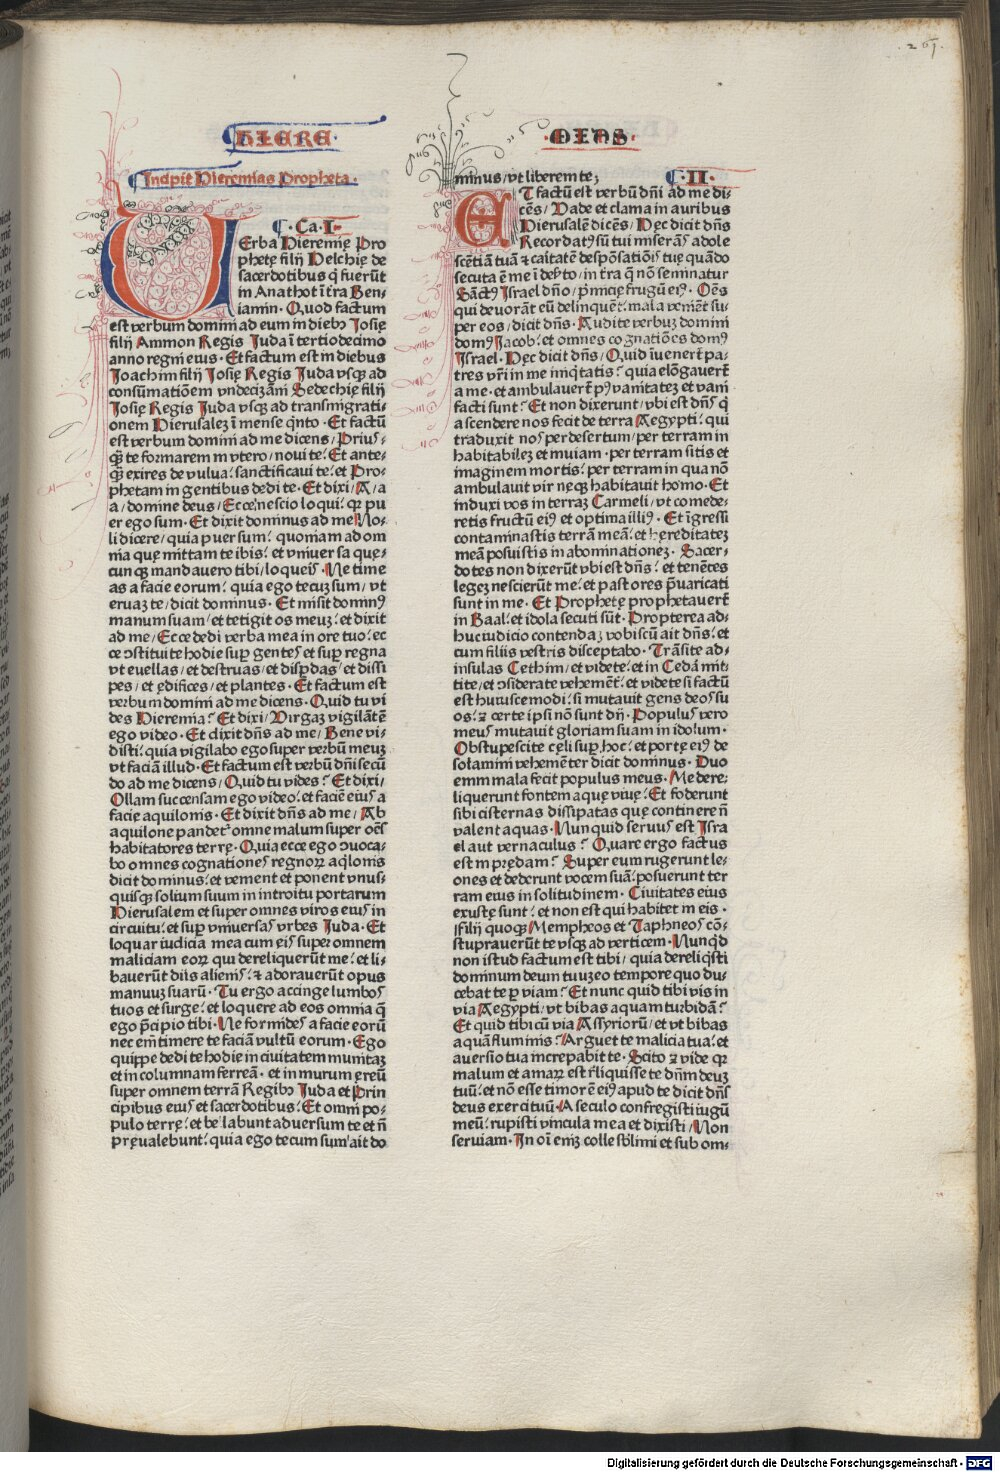 · 261 ·
HIERE
MIAS
Incipit Hieremias Propheta ·
· Ca · I ·
VErba Hieremię Pro
phetę filij Helchię de
sacerdotibus q̇ fuerūt
in Anathot ī t̄ra Ben-
iamin · Quod factum
est verbum domini ad eum in diebꝰ Josię
filij Ammon Regis Juda ī tertiodecimo
anno regni eius · Et factum est in diebus
Joachim filij Josię Regis Juda vsqꝫ ad
consūmatiōem vndecī anni Sedechię filij
Josię Regis Juda vsqꝫ ad transmigrati-
onem Hierusalez ī mense qīnto · Et factū
est verbum domini ad me dicens / Prius-
q̄ te formarem in vtero / noui te · Et ante-
q̄ exires de vulua / sanctificaui te · et Pro-
phetam in gentibus dedi te · Et dixi / A / a
a / domine deus / Ecce nescio loqui · qꝛ pu
er ego sum · Et dixit dominus ad me / No-
li dicere / quia puer sum · quoniam ad om
nia quę mittam te ibis · et vniuersa quę-
cunqꝫ mandauero tibi / loqueris · Ne time
as a facie eorum · quia ego tecuz sum / vt
eruaz te / dicit dominus · Et misit dominꝰ
manum suam / et tetigit os meuz · et dixit
ad me / Ecce dedi verba mea in ore tuo · ec
ce ↄstitui te hodie supꝫ gentes et supꝫ regna
vt euellas / et destruas / et disꝑdas et dissi
pes / et ędifices / et plantes · Et factum est
verbum domini ad me dicens · Quid tu vi
des Hieremia? Et dixi / Virgaz vigilātē
ego video · Et dixit dn̄s ad me / Bene vi-
disti · quia vigilabo ego super verbū meuz
vt faciā illud · Et factum est verbū dn̄i secū
do ad me dicens / Quid tu vides? Et dixi /
Ollam succensam ego video · et faciē eius a
facie aquilonis · Et dixit dn̄s ad me / Ab
aquilone pandet̄ omne malum super oēs
habitatores terrę · Quia ecce ego ↄuoca-
bo omnes cognationes regnoꝝ aq̇lonis
dicit dominus · et venient et ponent vnus-
quisqꝫ solium suum in introitu portarum
Hierusalem et super omnes viros eius in
circuitu · et supꝫ vniuersas vrbes Juda · Et
loquar iudicia mea cum eis super omnem
maliciam eoꝝ qui dereliquerūt me · et li-
bauerūt diis alienis · ⁊ adorauerūt opus
manuuz suarū · Tu ergo accinge lumbos
tuos et surge · et loquere ad eos omnia q̄
ego p̄cipio tibi · Ne formides a facie eorū
nec em̄ timere te faciā vultū eorum · Ego
quippe dedi te hodie in ciuitatem munitaz
et in columnam ferreā · et in murum ęreū
super omnem terrā Regibꝰ Juda et Prin
cipibus eius et sacerdotibus · Et omni po-
pulo terrę · et bellabunt aduersum te et n̄
pręualebunt · quia ego tecum sum ait do
minus / vt liberem te ;
· II ·
ET factū est verbū dn̄i ad me di-
cēs / Vade et clama in auribus
Hierusalē dicēs / Hęc dicit dn̄s
Recordatꝰ sū tui miserans adole
scētiā tuā ⁊ caītatē despōsatiōis tuę quādo
secuta es me ī deẜto / in t̄ra q̄ nō seminatur
Sāctꝰ Israel dn̄o / p̄micię frugū eiꝰ · Oēs
qui deuorāt eū delinquēt · mala veniēt su-
per eos / dicit dn̄s · Audite verbuz domini
domꝰ Jacob · et omnes cognatiōes domꝰ
Israel · Hęc dicit dn̄s / Quid īuenert̄ pa-
tres vr̄i in me inīqtatis? quia elōgauert̄
a me · et ambulauert̄ pꝰ vanitatez et vani
facti sunt? Et non dixerunt / vbi est dn̄s q̇
ascendere nos fecit de terra Aegypti · qui
traduxit nos per desertum / per terram in
habitabilez et inuiam · per terram sitis et
imaginem mortis · per terram in qua nō
ambulauit vir neqꝫ habitauit homo · Et
induxi vos in terraz Carmeli / vt comede-
retis fructū eiꝰ et optima illiꝰ · Et īgressi
contaminastis terrā meā · et hęreditatez
meā posuistis in abominationez · Sacer-
dotes non dixerūt vbi est dn̄s · et tenētes
legez nescierūt me · et pastores p̄uaricati
sunt in me · Et Prophetę prophetauert̄
in Baal · et idola secuti sūt · Propterea ad-
huc iudicio contendaꝫ vobiscū ait dn̄s · et
cum filiis vestris disceptabo · Trāsite ad-
insulas Cethim / et videte · et in Cedā mit-
tite / et ↄsiderate vehemēt̄ · et videte si factū
est huiuscemodi · si mutauit gens deos su
os · ⁊ certe ipsi nō sunt dij · Populus vero
meus mutauit gloriam suam in idolum ·
Obstupescite cęli supꝫ hoc · et portę eiꝰ de
solamini vehemēter dicit dominus · Duo
enim mala fecit populus meus · Me dere-
liquerunt fontem aquę viuę · Et foderunt
sibi cisternas dissipatas quę continere n̄
valent aquas · Nunquid seruus est Isra
el aut vernaculus? Quare ergo factus
est in prędam? Super eum rugerunt le-
ones et dederunt vocem suā · posuerunt ter
ram eius in solitudinem · Ciuitates eius
exustę sunt · et non est qui habitet in eis ·
Filij quoqꝫ Mempheos et Taphneos cō-
stuprauerūt te vsqꝫ ad verticem · Nunq̇d
non istud factum est tibi / quia dereliq̇sti
dominum deum tuuz eo tempore quo du-
cebat te ꝑ viam? Et nunc quid tibi vis in
via Aegypti / vt bibas aquam turbidā?
Et quid tibi cū via Assyriorū / et vt bibas
aquā fluminis? Arguet te malicia tua · et
auersio tua increpabit te · Scito ⁊ vide qꝛ
malum et amaꝝ est r̄liquisse te dn̄m deuz
tuū · et nō esse timorē eiꝰ apud te dicit dn̄s
deus exercituū · A seculo confregisti iugū
meū · rupisti vincula mea et dixisti / Non
seruiam · In oī em̄ colle sb̄limi et sub om-
Digitalisierung gefördert durch die Deutsche Forschungsgemeinschaft - DFG